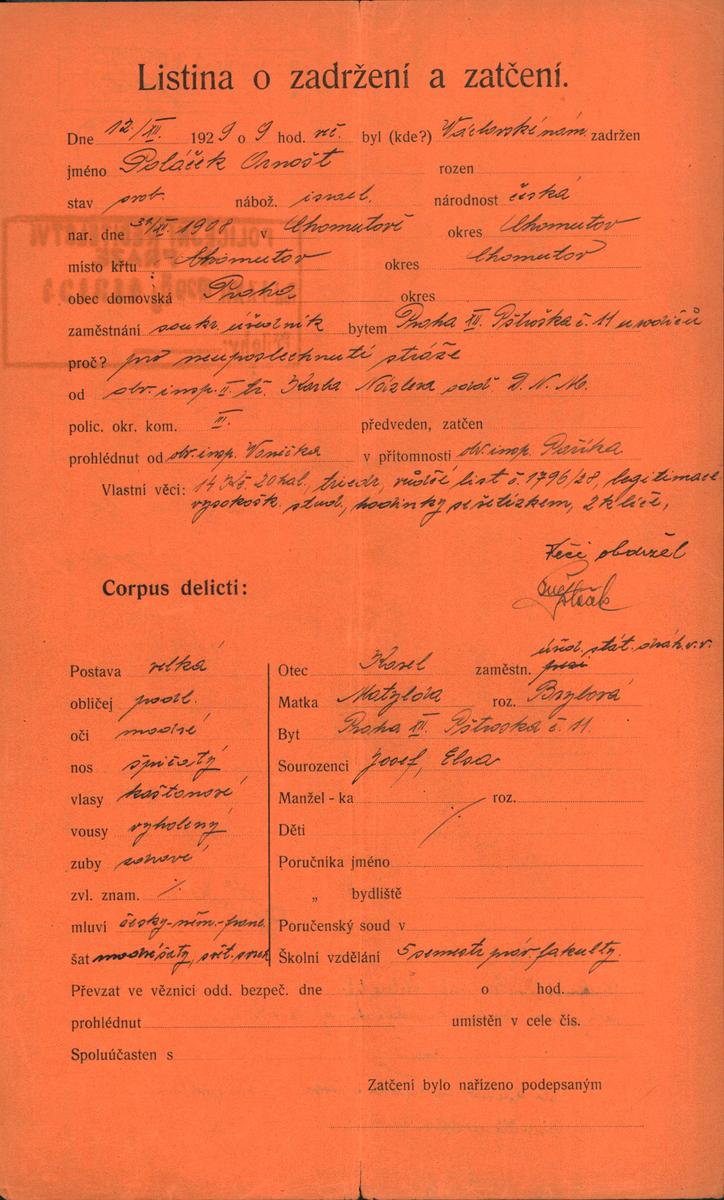 Listina o zadržení a zatčení.
Dne 12/XII. 1929 o 9 hod. več. byl (kde?) Václavské nám. zadržen
jméno Poláček Arnošt rozen
stav svob. nábož. israel. národnost česká
nar. dne XII 1908 v Chomutově okres Chomutov
místo křtu Chomutov okres Chomutov
obec domovská Praha okres
zaměstnání soukr. úředník bytem Praha XII. Pštroska č. 11 u rodičů
proč? pro neuposlechnutí stráže
od obv. insp. II. tř. Karla
polic. okr. kom. III. předveden, zatčen
prohlédnut od obv. insp. Vaníčka v přítomnosti obv. insp. Paříka
Vlastní věci: 14 Kč 20 hal., triedr, vůdčí list č. 1796/28, legitimace
vysokošk. stud., hodinky se řetízkem, 2 klíče,
Věci obdržel
Corpus delicti:
Postava velká
obličej podl.
oči modré
nos špičatý
vlasy kaštanové
vousy vyholený
zuby zdravé
zvl. znam. ./.
mluví česky-něm.-franc.
šat modré šaty, svět.
úřed. stát. drah v.v.
Otec Karel zaměstn.
Matka Matylda roz. Brylová
Byt Praha XII. Pštroska č. 11.
Sourozenci Josef, Elsa
Manžel - ka roz.
Děti ./.
Poručníka jméno
„ bydliště
Poručenský soud v
Školní vzdělání 5 semestr práv. fakulty.
Převzat ve věznici odd. bezpeč. dne o hod.
prohlédnut umístěn v cele čís.
Spoluúčasten s
Zatčení bylo nařízeno podepsaným